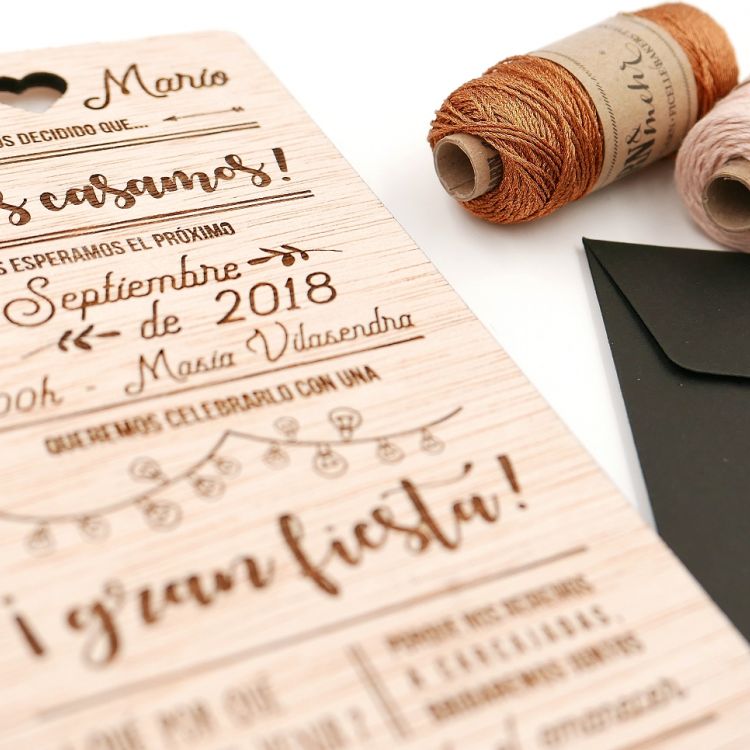 Mario
OS DECIDIDO QUE...
s casamos!
S ESPERAMOS EL PRÓXIMO
Septiembre
de 2018
00h - Masía Vilasendra
QUEREMOS CELEBRARLO CON UNA
¡gran fiesta!
PORQUE NOS REIREMOS
A CARCAJADAS,
BAILAREMOS JUNTOS
amanecer,
QUÉ POR QUÉ
GARN
&mehr